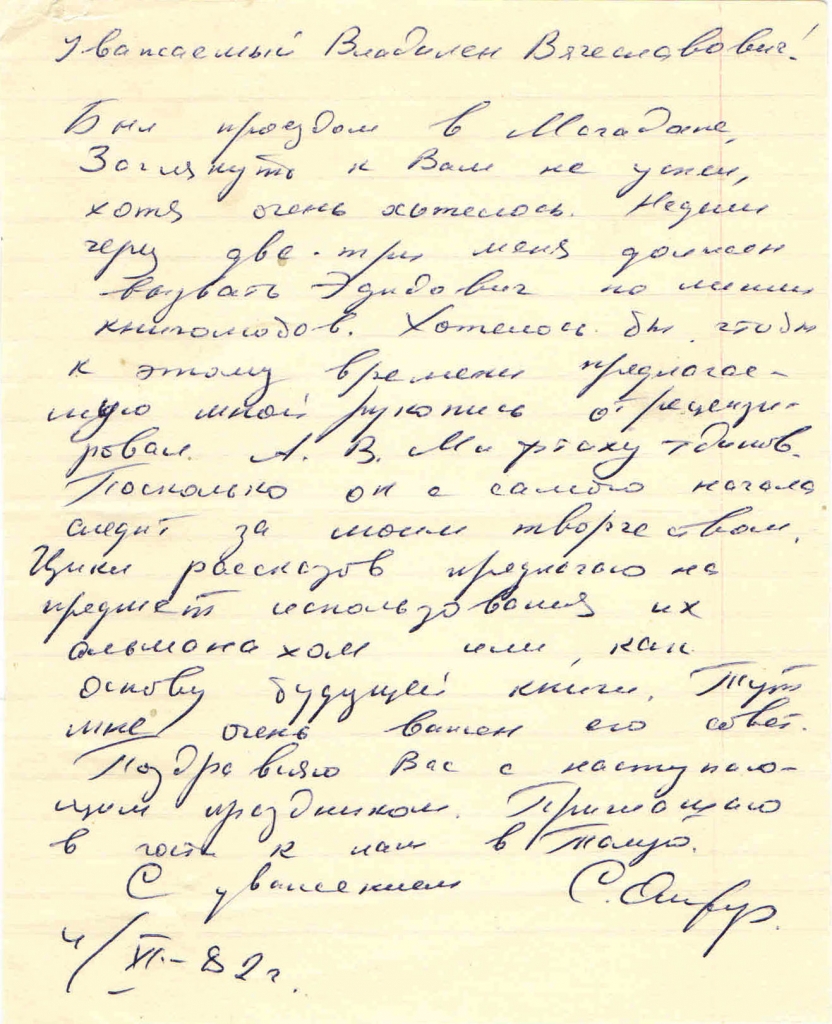 Уважаемый Владилен Вячеславович!
Был проездом в Магадане,
Заглянуть к Вам не успел,
хотя очень хотелось. Недели
через две-три меня должен
вызвать Эдидович по линии
книголюбов. Хотелось бы, чтобы
к этому времени предлагае-
мую мной рукопись отрецензи-
ровал А. В. Мифтахутдинов.
Поскольку он с самого начала
следит за моим творчеством.
Цикл рассказов предлагаю на
предмет использования их
альманахом или, как
основу будущей книги. Тут
мне очень важен его совет.
Поздравляю Вас с наступаю-
щим праздником. Приглашаю
в гости к нам в Талую.
С уважением С.
4/XI-82г.